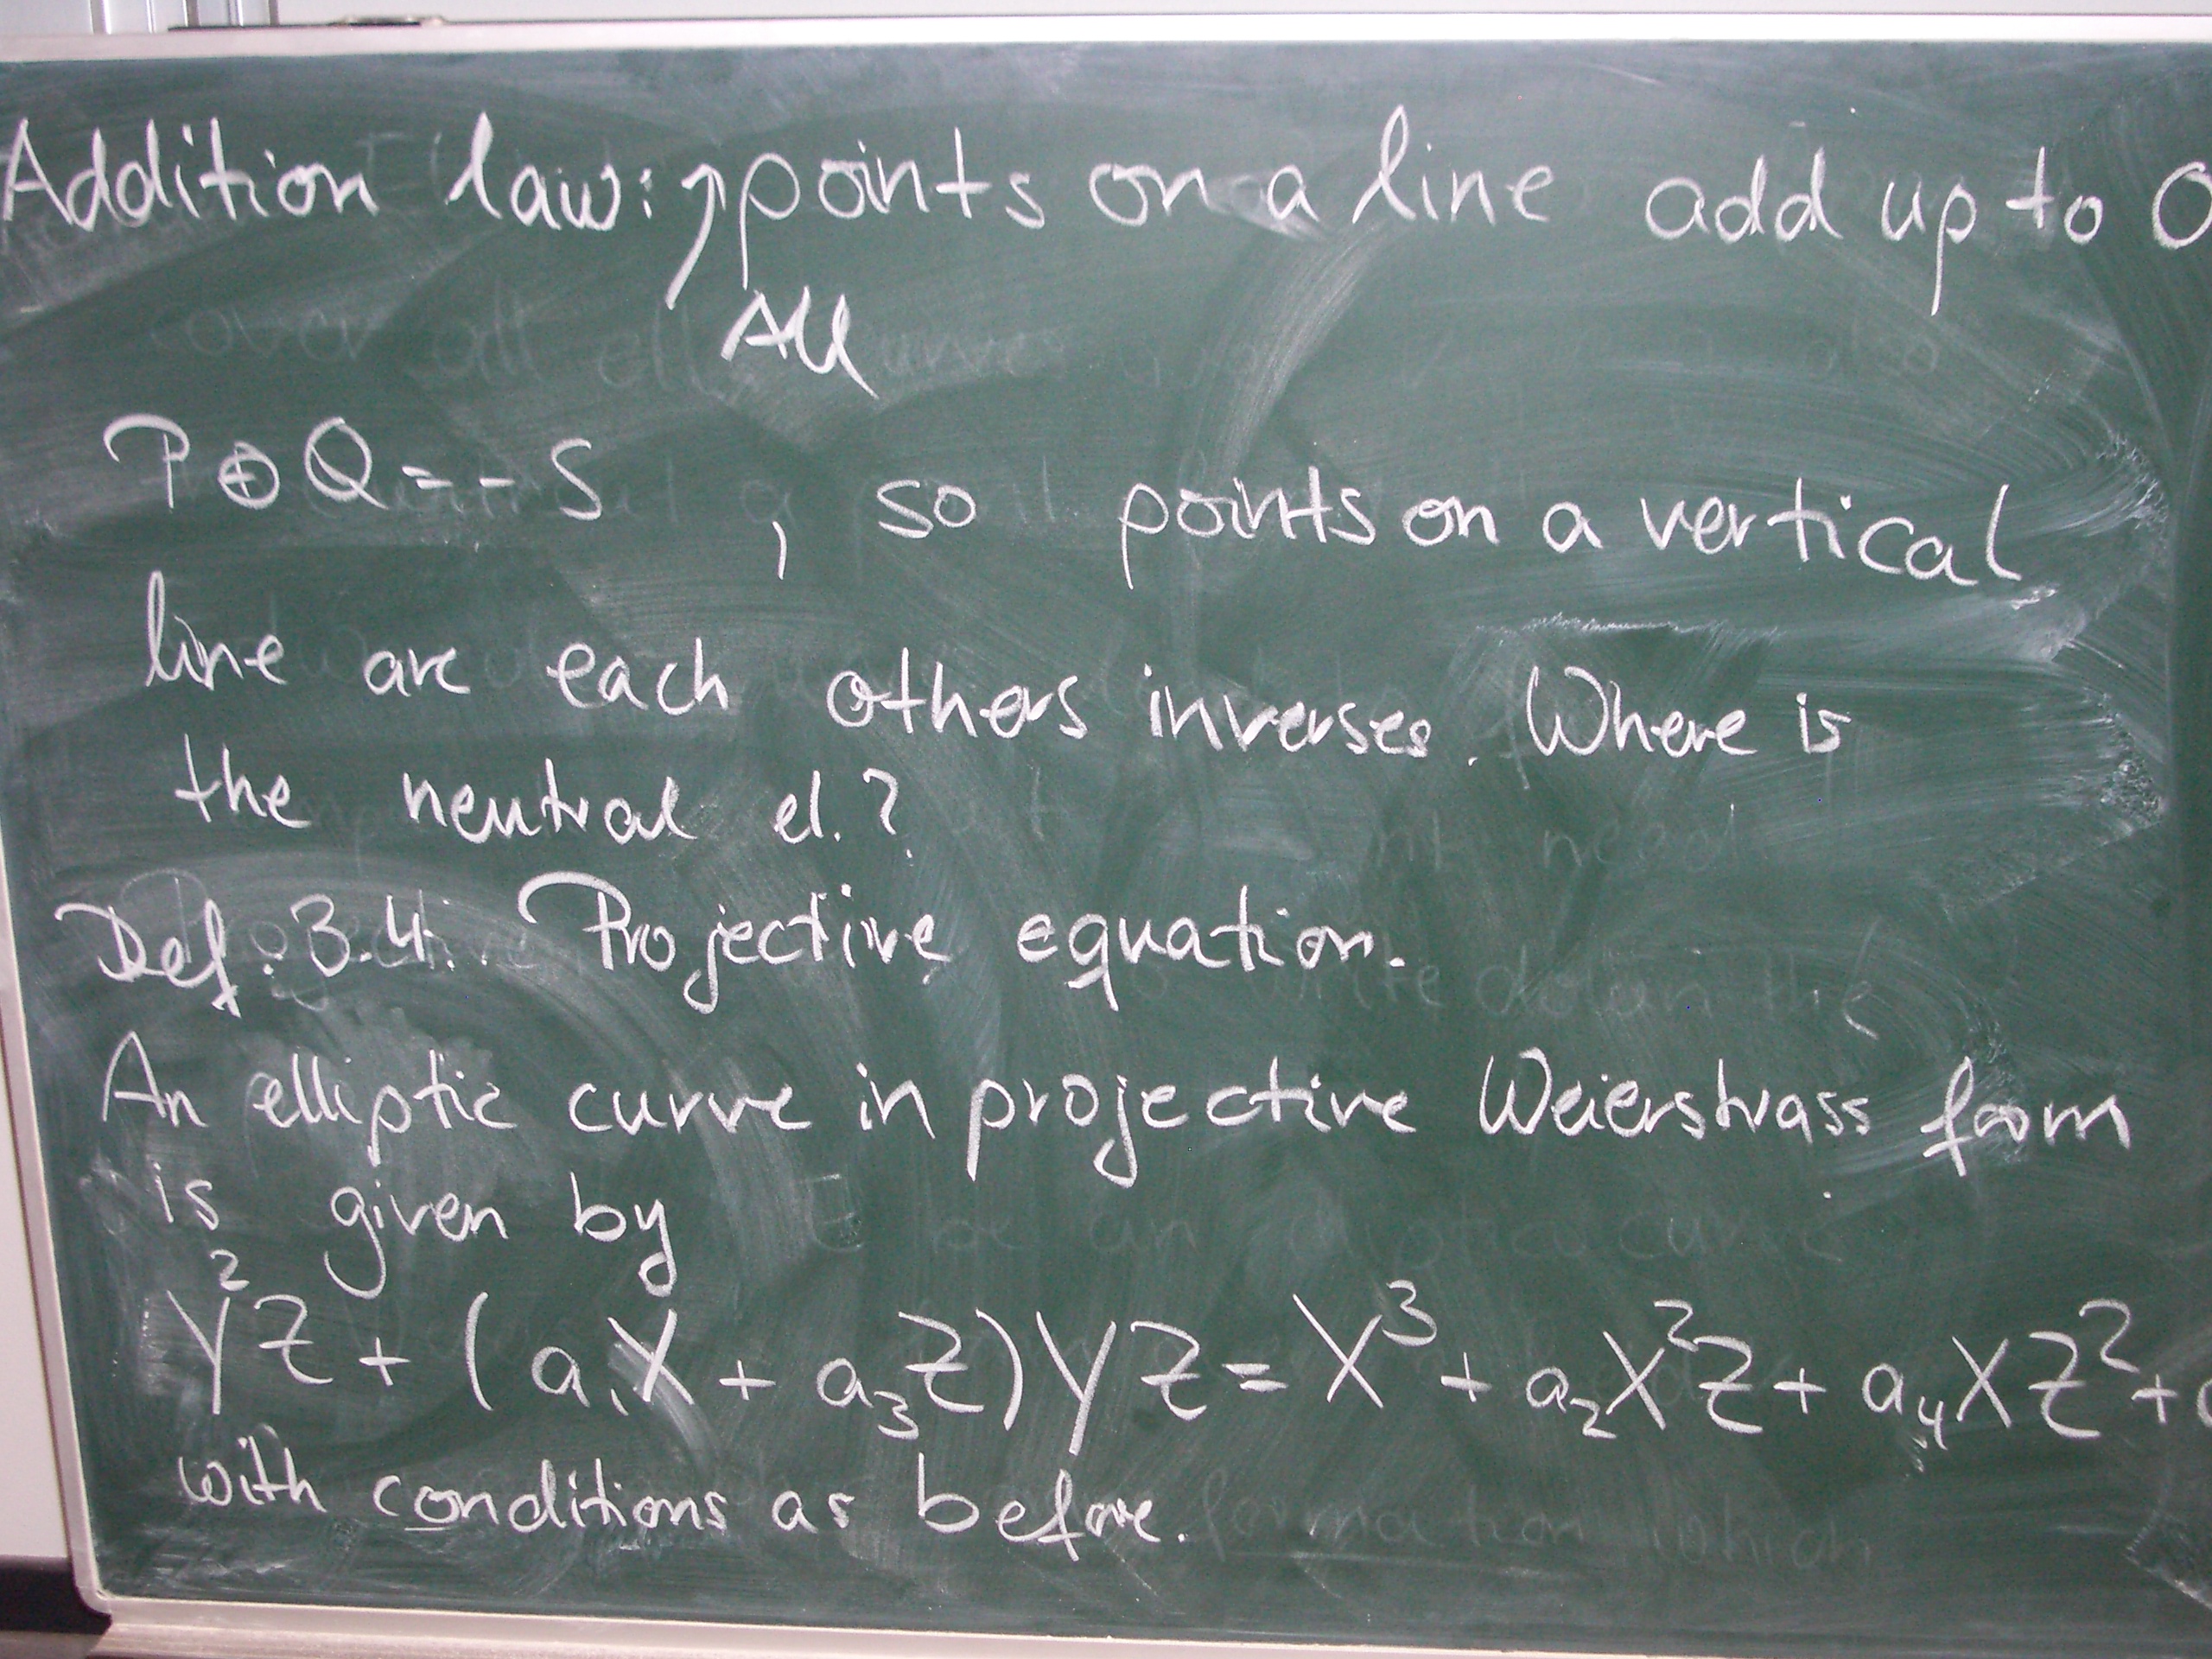 Addition law: ↑points on a line add up to O
All
P ⊕ Q = - S , so points on a vertical
line are each others inverses. Where is
the neutral el.?
Def. 3.4: Projective equation.
An elliptic curve in projective Weierstrass form
is given by
Y²Z + (a₁X + a₃Z)YZ = X³ + a₂X²Z + a₄XZ² +
with conditions as before.